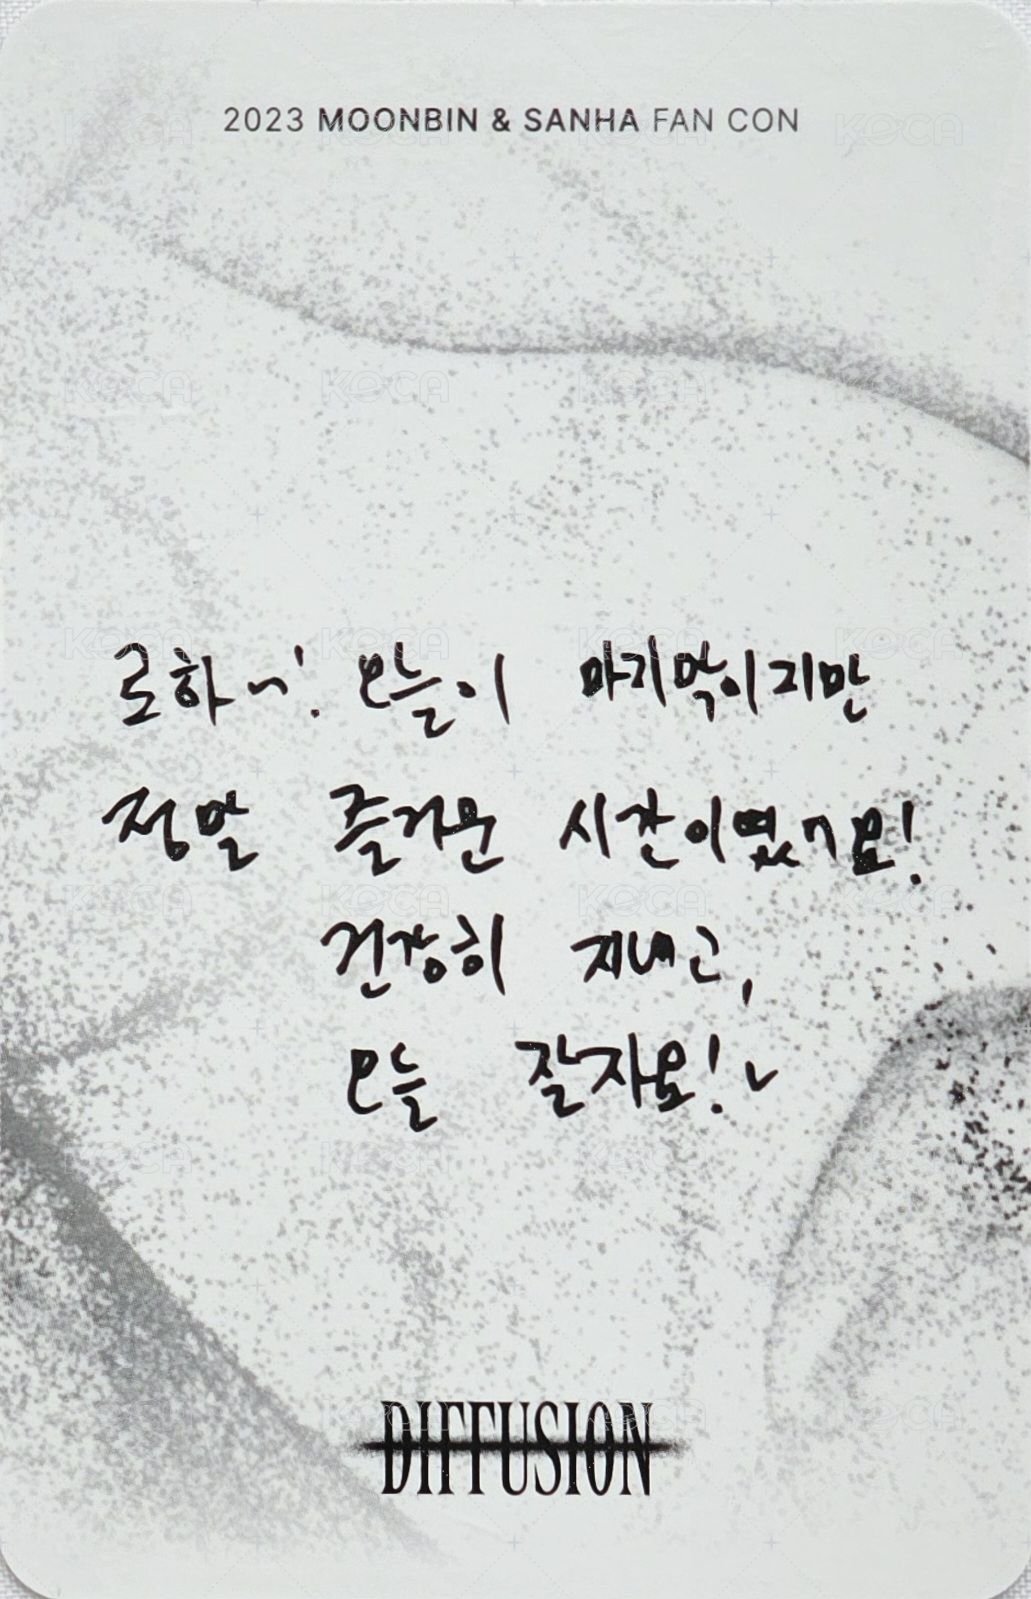 2023 MOONBIN & SANHA FAN CON
로하~! 오늘이 마지막이지만
정말 즐거운 시간이였어요!
건강히 지내고,
오늘 잘자요!~
DIFFUSION